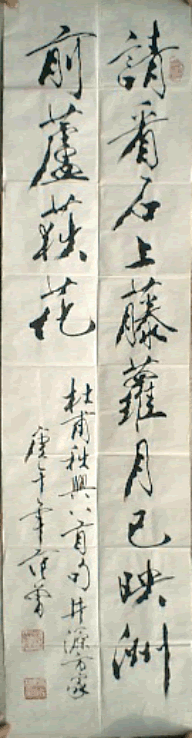 請看石上藤蘿月已映洲
前蘆荻花
杜甫秋興八首句 井源方家
庚午年 范曾